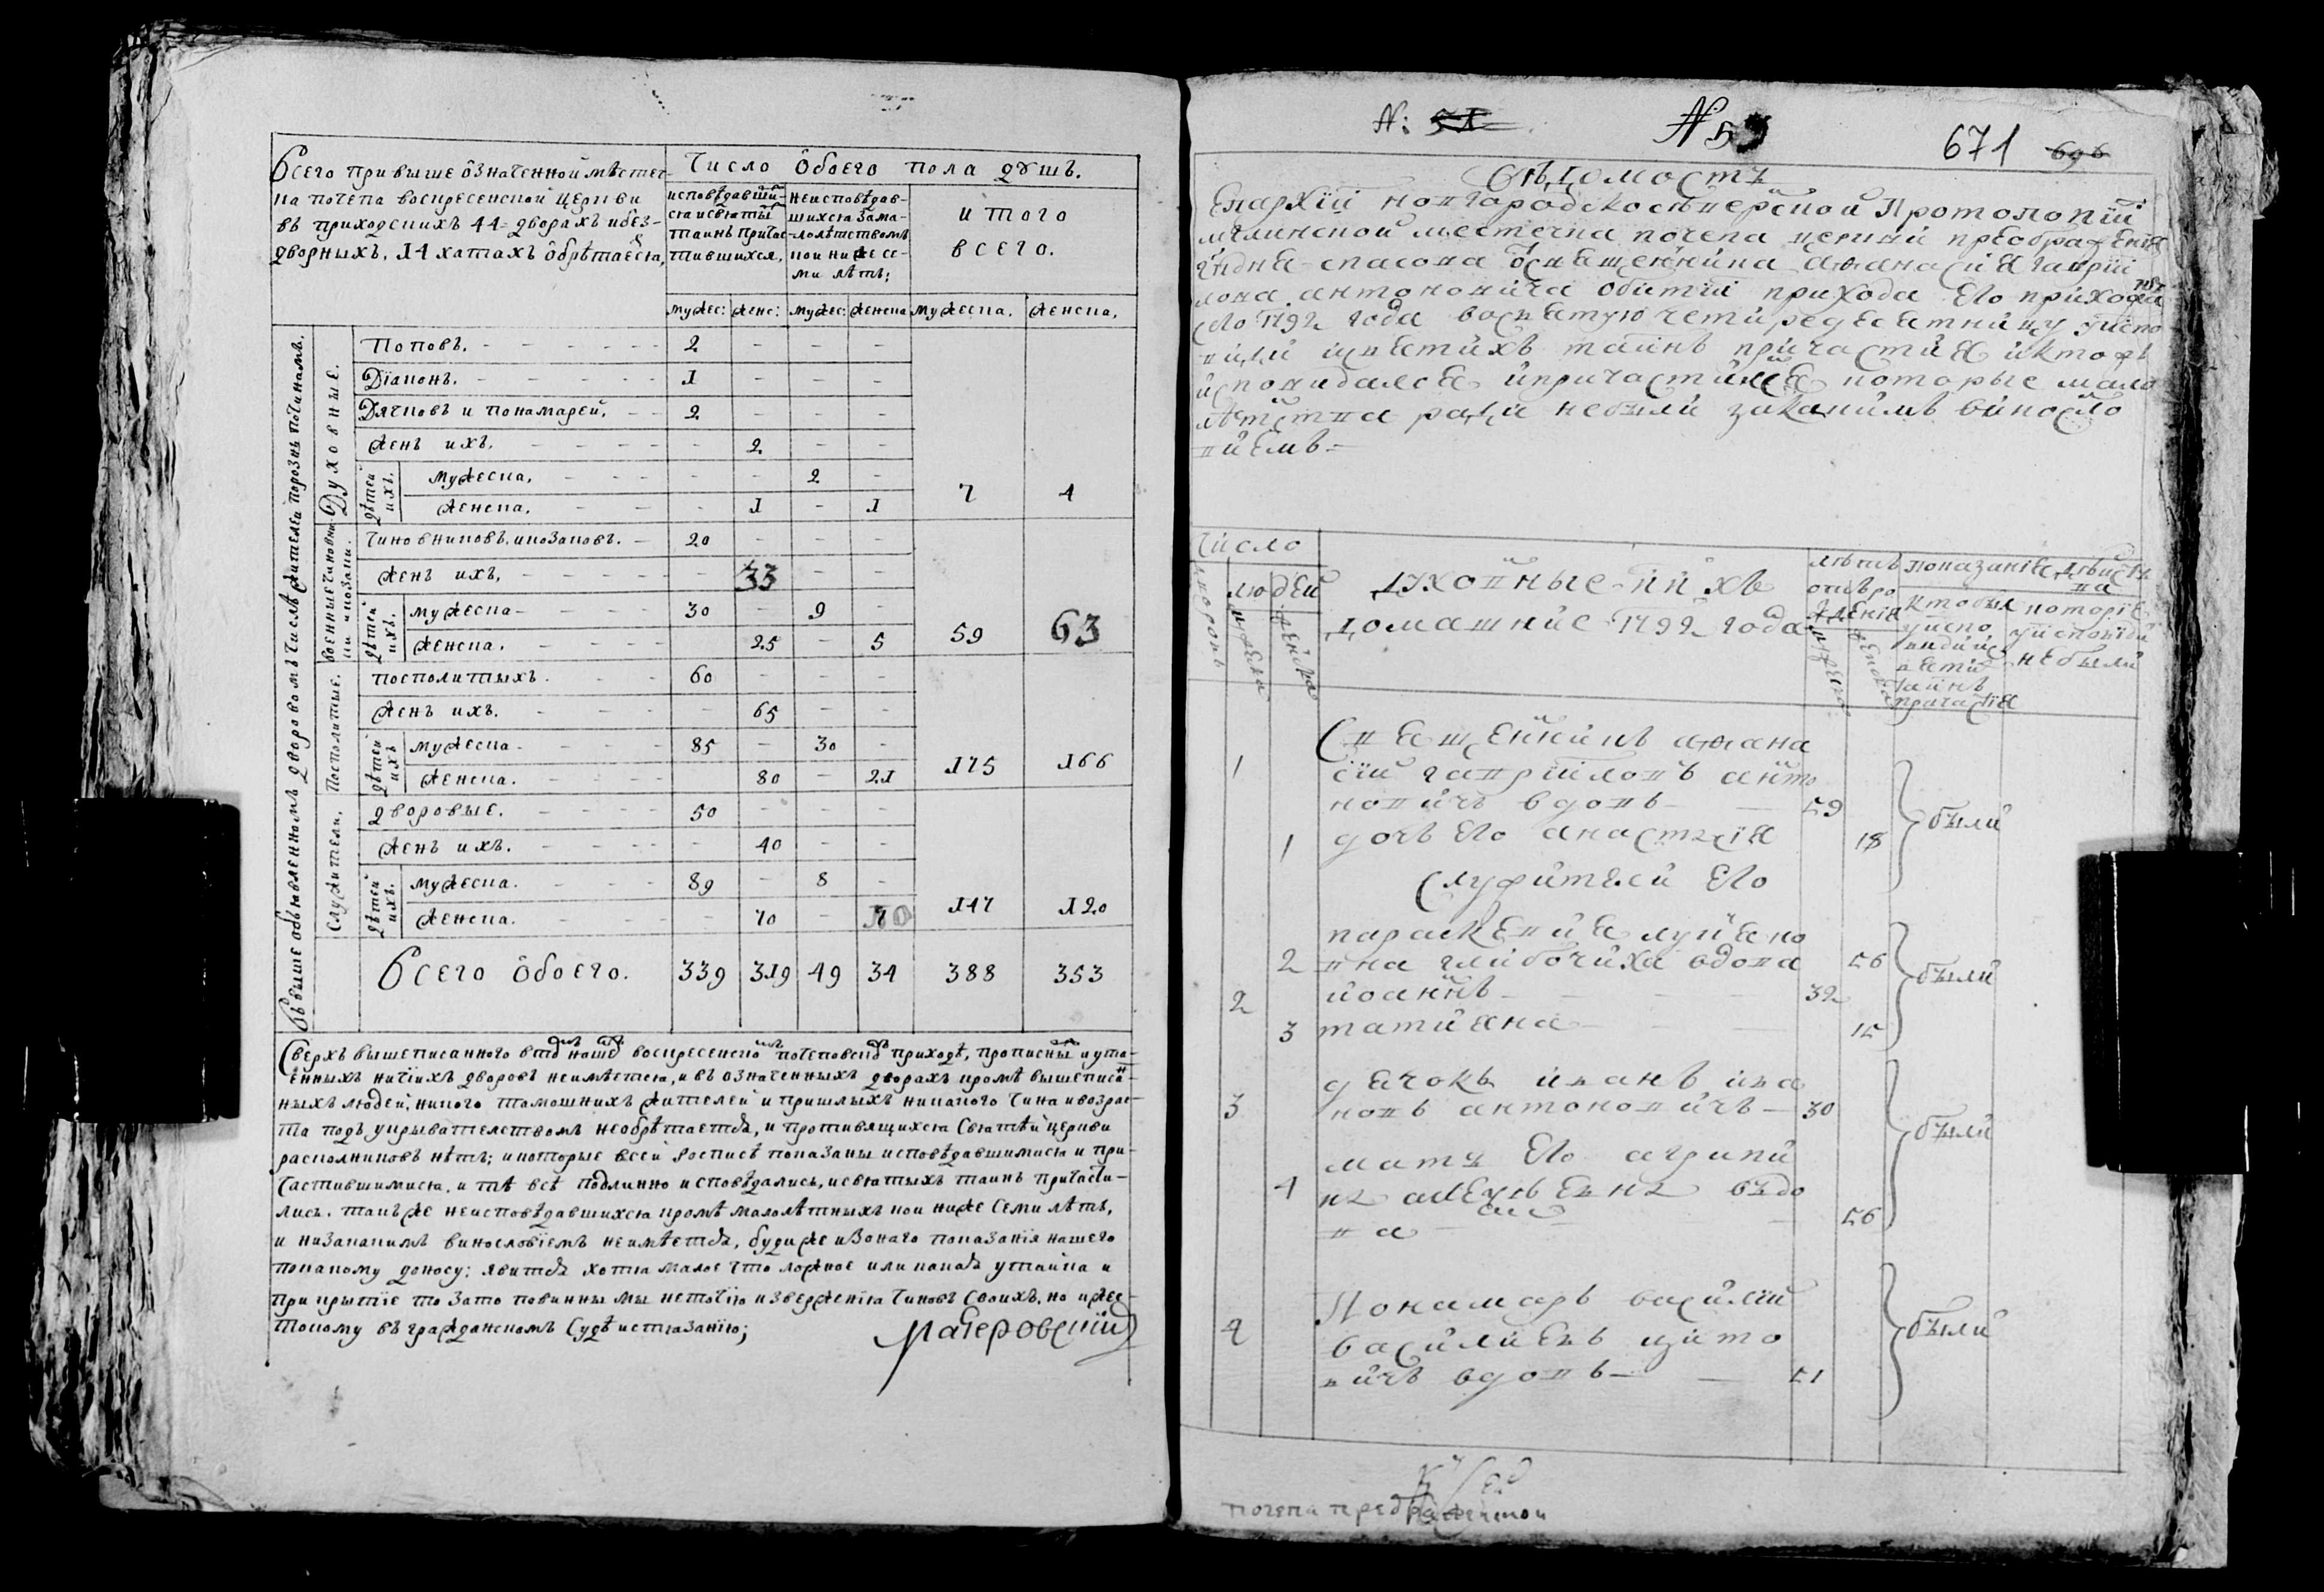 Всего при вышеозначенной местеч-
ка почепа воскресенской церкви
въ приходскихъ 44 дворахъ и без-
дворныхъ 14 хатахъ обрѣтается,
Число обоего пола душъ.
исповѣдавши-
ся и святыхъ
таинъ причас-
тившихся,
неисповѣдав-
шихся за ма-
лолѣтствомъ
кои ниже се-
ми лѣтъ;
итого
всего.
мужес: женс: мужес: женска мужеска. женска.
въ выше объявленномъ дворовомъ числѣ жителей порознь по чинамъ.
Духовные.
Поповъ. 2 - - -
Діаконъ. 1 - - -
Дячковъ и пономарей. 2 - - -
Женъ ихъ. - 2 - -
дѣтей ихъ.
мужеска. - - 2 -
женска. - 1 - 1 7 4
военные чиновни-
ки и козаки.
чиновниковъ и козаковъ. 20 - - -
женъ ихъ. - 33 - -
дѣтей ихъ.
мужеска 30 - 9 -
женска. 25 - 5 59 63
Посполитые.
посполитыхъ. 60 - - -
женъ ихъ. - 65 - -
дѣтей ихъ
мужеска 85 - 30 -
женска. 80 - 21 175 166
Служители.
дворовые. 50 - - -
женъ ихъ. - 40 - -
дѣтей ихъ.
мужеска. 89 - 8 -
женска. - 70 - 147 120
Всего обоего. 339 319 49 34 388 353
Сверхъ вышеписанного въ томъ нашемъ воскресенскомъ почеповскомъ приходѣ, прописныхъ и ута-
енныхъ ничіихъ дворовъ неимѣется, и въ означенныхъ дворахъ кромѣ вышеписан-
ныхъ людей, никого тамошнихъ жителей и пришлыхъ никакого чина и возрас-
та подъ укрывателствомъ необрѣтается, и противящихся святѣй церкви
расколниковъ нѣтъ; и которые всей росписѣ показаны исповѣдавшимися и при-
частившимися, и тѣ всѣ подлинно исповѣдались, и святыхъ таинъ причасти-
лись. также неисповѣдавшихся кромѣ малолѣтныхъ кои ниже семи лѣтъ,
и низакакимъ винословіемъ неимѣется, будиже изонаго показанія нашего
покакому доносу; явится хотя малое что ложное или какая утайка и
прикрытіе то зато повинны мы неточію изверженія чиновъ своихъ, но и жес-
токому въ гражданскомъ судѣ истязанію;
N: 51
N 53
671 696
Вѣдомость
Епархіи новгородскосѣверской Протопопіи
мглинской местечка почепа церкви преображенія
Гнdня спасова священника афанасия гаврии
лова антоновича обитіи прихода его прихожа
1792 года восвятую четиредесятницу
святихъ таинъ причастия и кто
исповидался и причастился которые мало
лѣтства ради небыли
виемъ
число
людей
дворовъ
мужеска
женска
духовные и ихъ
домашние 1792 года
лѣтъ
отъ ро
жденія
мужеска
женска
показаніе действ
ва
кто был
у испо
види и с
вяти
таинъ
причастія
которіе
у исповиди
небыли
1 Священникъ афана
сіи гавриіловъ анто
новичъ вдовъ 59
1 дочъ его анастасія 18
были
служителей его
2 параскевия
вна глибочиха вдова 56
2 иоаннъ 32
3 татияна 15
были
3 дячокъ иванъ ива
новъ антоновичъ 30
мать его агрипи
4 на вдо
ва 56
были
4 Пономаръ василии
василиевъ
вичъ вдовъ 51
были
почепа преображенской